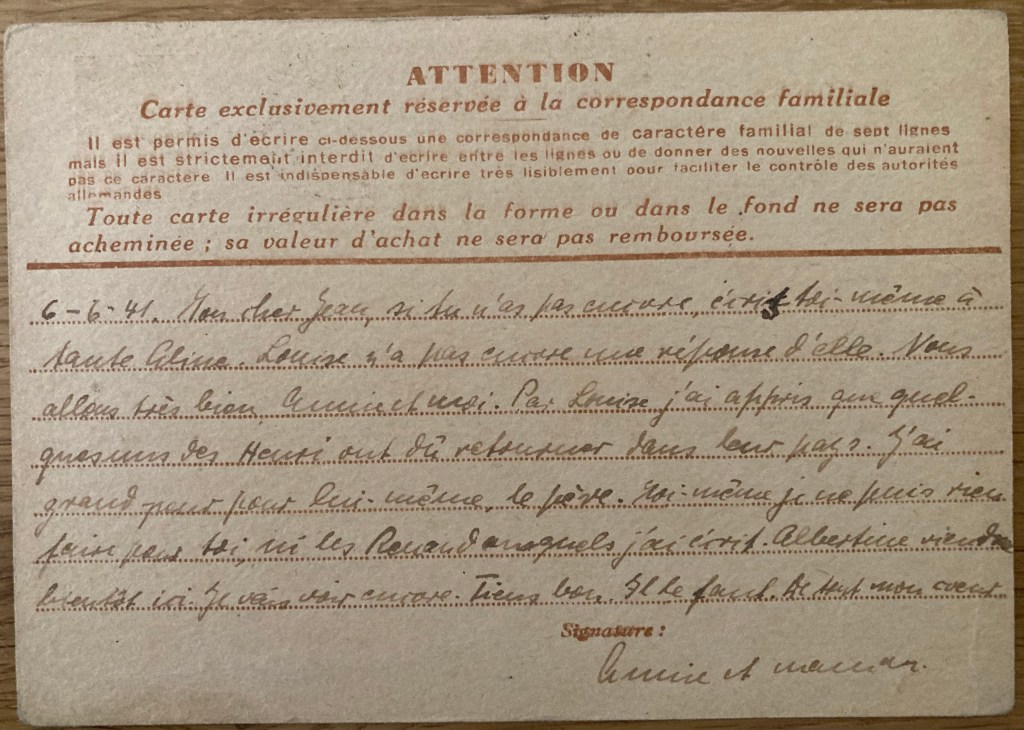 ATTENTION
Carte exclusivement réservée à la correspondance familiale
Il est permis d'écrire ci-dessous une correspondance de caractère familial de sept lignes
mais il est strictement interdit d'écrire entre les lignes ou de donner des nouvelles qui n'auraient
pas ce caractère Il est indispensable d'écrire très lisiblement pour faciliter le contrôle des autorités
allemandes
Toute carte irrégulière dans la forme ou dans le fond ne sera pas
acheminée ; sa valeur d'achat ne sera pas remboursée.
6-6-41. Mon cher Jean, si tu n'as pas encore, écris toi-même à
tante Céline. Louise n'a pas encore une réponse d'elle. Nous
allons très bien, Annie et moi. Par Louise j'ai appris que quel-
quesuns des Henri ont dû retourner dans leur pays. J'ai
grand peur pour lui-même, le père. Moi-même je ne puis rien
faire pour toi, ni les Renaud auxquels j'ai écrit. Albertine viendra
bientôt ici. Je vais voir encore. Tiens bon. Il le faut. De tout mon coeur
Signature :
Annie et maman.